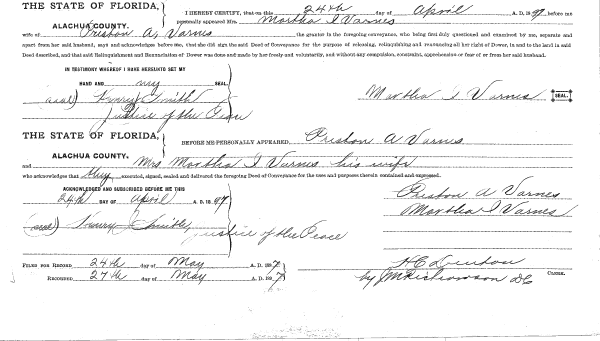 THE STATE OF FLORIDA,
ALACHUA COUNTY.
I HEREBY CERTIFY, that on this 24th day of April A. D. 1897 before me
personally appeared Mrs. Martha I Varnes
wife of Preston A. Varnes the grantor in the foregoing conveyance, who being first duly questioned and examined by me, separate and
apart from her said husband, says and acknowledges before me, that she did sign the said Deed of Conveyance for the purpose of releasing, relinquishing and renouncing all her right of Dower, in and to the land in said
Deed described, and that said Relinquishment and Renunciation of Dower was done and made by her freely and voluntarily, and without any compulsion, constraint, apprehension or fear of or from her said husband.
IN TESTIMONY WHEREOF I HAVE HEREUNTO SET MY
HAND AND my SEAL,
(seal) Henry Smith
Justice of the Peace
Martha I Varnes SEAL.
THE STATE OF FLORIDA,
ALACHUA COUNTY.
BEFORE ME PERSONALLY APPEARED, Preston A Varnes
and Mrs Martha I Varnes his wife
who acknowledges that they executed, signed, sealed and delivered the foregoing Deed of Conveyance for the uses and purposes therein contained and expressed.
ACKNOWLEDGED AND SUBSCRIBED BEFORE ME THIS
24th DAY OF April A. D. 1897
(seal) Henry Smith,
Justice of the Peace
Preston A Varnes
Martha I Varnes
FILED FOR RECORD 24th day of May 1897
RECORDED 27th day of May 1897
H C Denton CLERK.
by J M Richardson DC